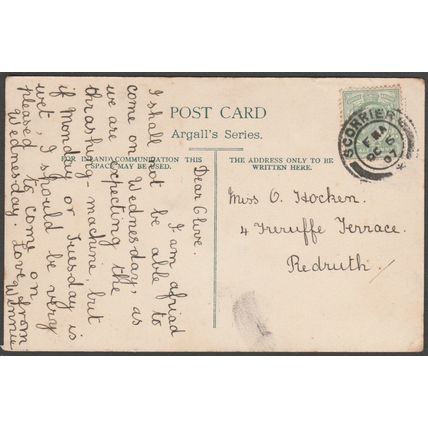 POST CARD
Argall's Series.
FOR INLAND COMMUNICATION THIS
SPACE MAY BE USED.
THE ADDRESS ONLY TO BE
WRITTEN HERE.
SCORRIER
Miss O. Hocken.
4 Treruffe Terrace.
Redruth.
Dear Olive.
I am afriad
I shall not be able to
come on Wednesday, as
we are expecting the
thrashing-machine, but
if Monday or Tuesday is
wet, I should be very
pleased to come on
Wednesday. Love from
Winnie